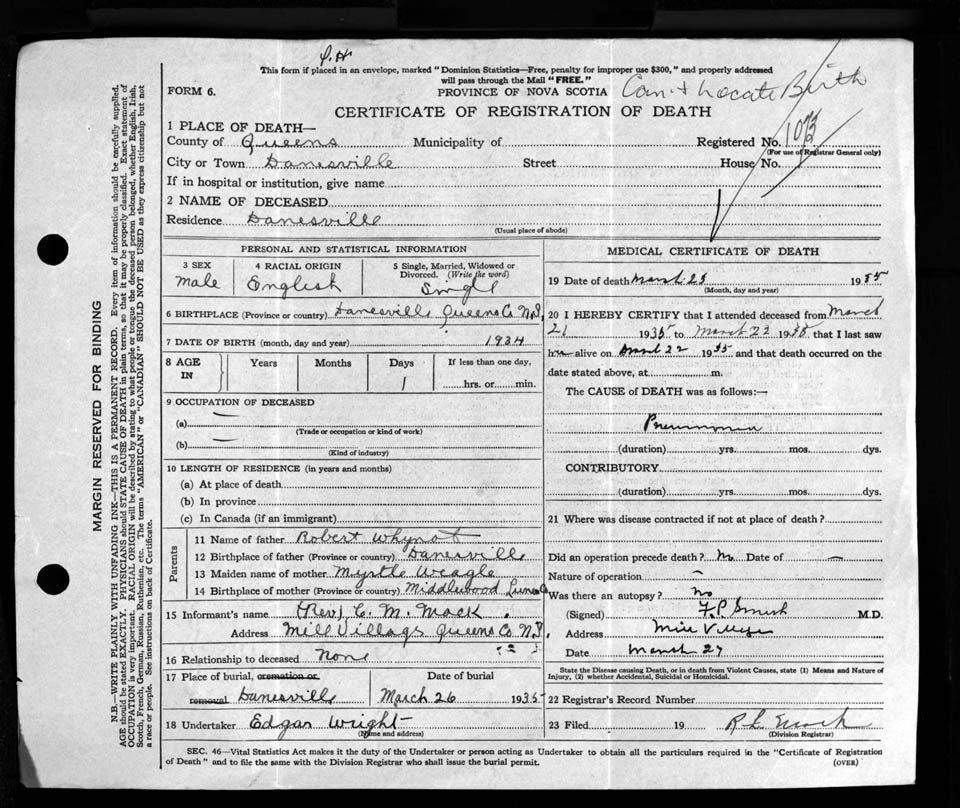 This form if placed in an envelope, marked "Dominion Statistics—Free, penalty for improper use $300," and properly addressed
will pass through the Mail "FREE."
FORM 6.
PROVINCE OF NOVA SCOTIA
Can't Locate Birth
CERTIFICATE OF REGISTRATION OF DEATH
1 PLACE OF DEATH—
County of Queens Municipality of Registered No.
(For use of Registrar General only)
City or Town Danesville Street House No.
If in hospital or institution, give name
2 NAME OF DECEASED
Residence Danesville
(Usual place of abode)
PERSONAL AND STATISTICAL INFORMATION
3 SEX 4 RACIAL ORIGIN 5 Single, Married, Widowed or Divorced. (Write the word)
Male English Single
6 BIRTHPLACE (Province or country) Danesville Queens Co N.S.
7 DATE OF BIRTH (month, day and year) 1934
8 AGE IN Years Months Days If less than one day,
1 hrs. or min.
9 OCCUPATION OF DECEASED
(a) —
(Trade or occupation or kind of work)
(b) —
(Kind of industry)
10 LENGTH OF RESIDENCE (in years and months)
(a) At place of death
(b) In province
(c) In Canada (if an immigrant)
Parents
11 Name of father Robert Whynot
12 Birthplace of father (Province or country) Danesville
13 Maiden name of mother Myrtle Weagle
14 Birthplace of mother (Province or country) Middlewood Lunen Co
15 Informant's name (Rev) C. M. Mack
Address Mill Village Queens Co. N.S.
16 Relationship to deceased None
17 Place of burial, cremation or Date of burial
removal Danesville March 26 1935
18 Undertaker Edgar Wright
(Name and address)
MEDICAL CERTIFICATE OF DEATH
19 Date of death March 23 1935
(Month, day and year)
20 I HEREBY CERTIFY that I attended deceased from March
21 1935 to March 23 1935 that I last saw
him alive on March 22 1935 and that death occurred on the
date stated above, at m.
The CAUSE of DEATH was as follows:—
Pneumonia
(duration) yrs. mos. dys.
CONTRIBUTORY
(duration) yrs. mos. dys.
21 Where was disease contracted if not at place of death?
Did an operation precede death? No Date of —
Nature of operation —
Was there an autopsy? no
(Signed) F. P. Smith M.D.
Address Mill Village
Date March 27
State the Disease causing Death, or in death from Violent Causes, state (1) Means and Nature of
Injury, (2) whether Accidental, Suicidal or Homicidal.
22 Registrar's Record Number
23 Filed 19
(Division Registrar)
SEC. 46—Vital Statistics Act makes it the duty of the Undertaker or person acting as Undertaker to obtain all the particulars required in the "Certificate of Registration
of Death" and to file the same with the Division Registrar who shall issue the burial permit.
(OVER)
MARGIN RESERVED FOR BINDING
N.B.—WRITE PLAINLY WITH UNFADING INK—THIS IS A PERMANENT RECORD. Every item of information should be carefully supplied.
AGE should be stated EXACTLY. PHYSICIANS should STATE CAUSE OF DEATH in plain terms, so that it may be properly classified. Exact statement of
OCCUPATION is very important. RACIAL ORIGIN will be described by stating to what people or tongue the deceased person belonged, whether English, Irish,
Scotch, French, German, Russian, Ruthenian, etc. The terms "AMERICAN" or "CANADIAN" SHOULD NOT BE USED as they express citizenship but not
a race or people. See instructions on back of Certificate.